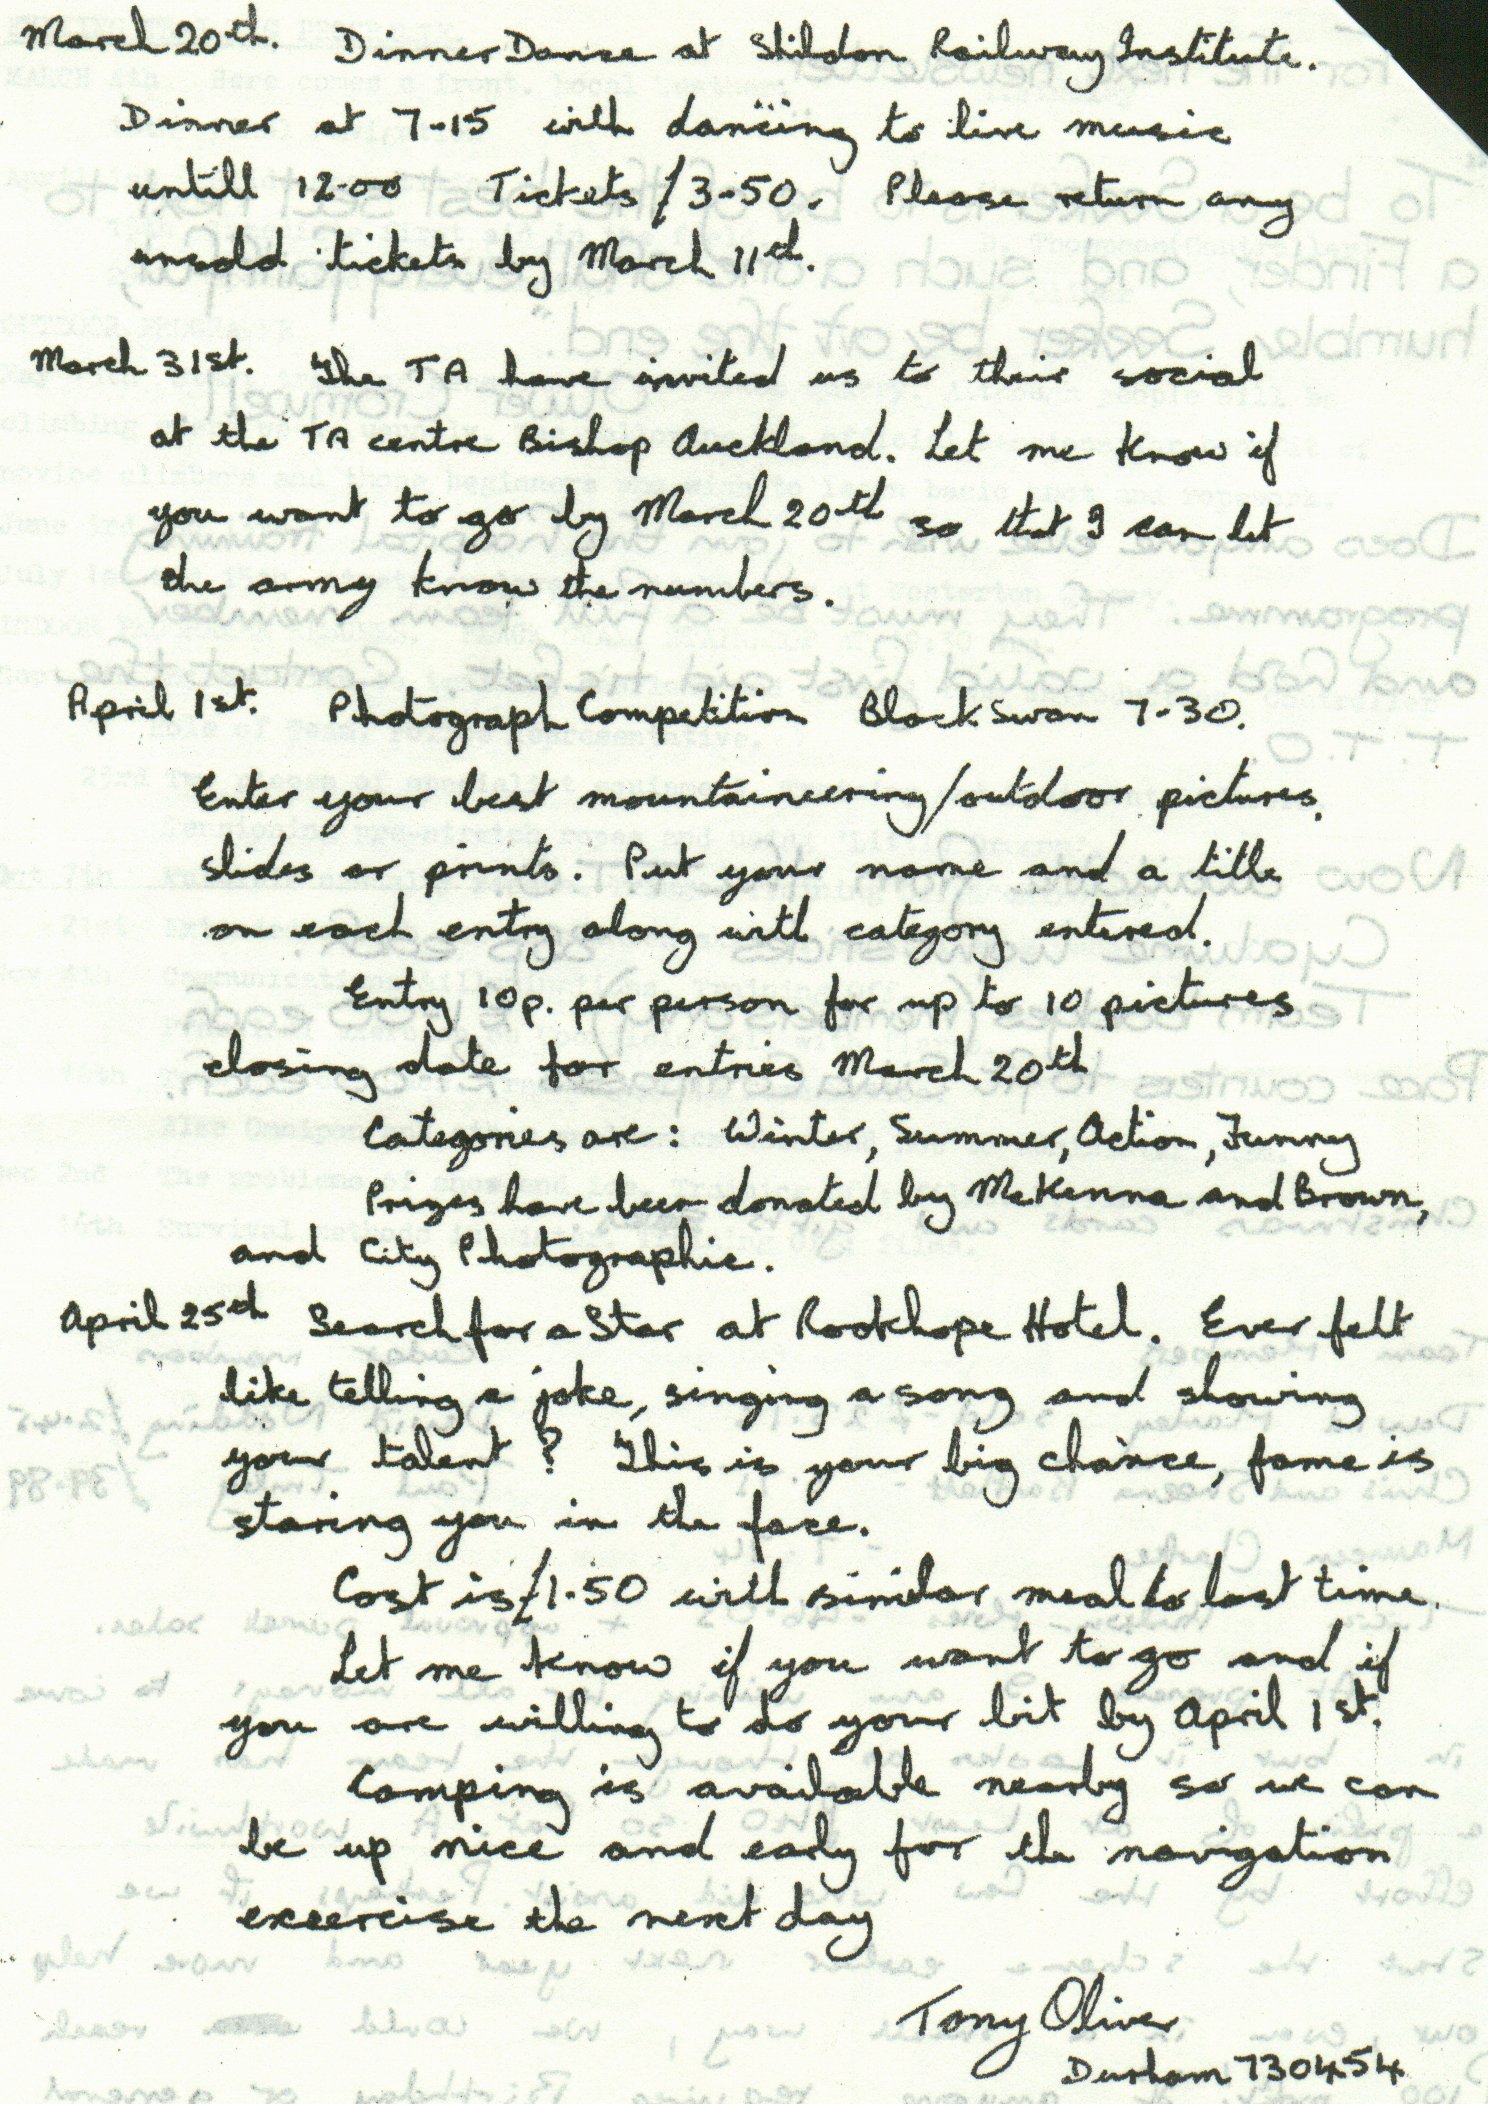 March 20th. Dinner Dance at Shildon Railway Institute.
Dinner at 7-15 with dancing to live music
untill 12-00 Tickets £3-50. Please return any
unsold tickets by March 11th.
March 31st. The TA have invited us to their social
at the TA centre Bishop Auckland. Let me know if
you want to go by March 20th so that I can let
the army know the numbers.
April 1st. Photograph Competition Black Swan 7-30.
Enter your best mountaineering/outdoor pictures,
slides or prints. Put your name and a title
on each entry along with category entered.
Entry 10p. per person for up to 10 pictures
closing date for entries March 20th
Categories are: Winter, Summer, Action, Funny
Prizes have been donated by McKenna and Brown,
and City Photographic.
April 25th Search for a Star at Rookhope Hotel. Ever felt
like telling a joke, singing a song and showing
your talent? This is your big chance, fame is
staring you in the face.
Cost is £1-50 with similar meal to last time.
Let me know if you want to go and if
you are willing to do your bit by April 1st.
Camping is available nearby so we can
be up nice and early for the navigation
excercise the next day
Tony Oliver
Durham 730454